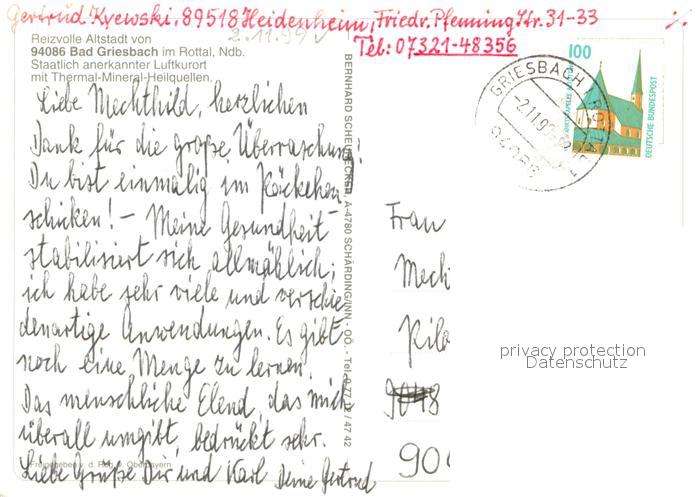 Gertrud Kyewski, 89518 Heidenheim, Friedr. Pfenning Str. 31-33
Tel: 07321-48356
2.11.99
Reizvolle Altstadt von
94086 Bad Griesbach im Rottal, Ndb.
Staatlich anerkannter Luftkurort
mit Thermal-Mineral-Heilquellen.
Liebe Mechthild, herzlichen
Dank für die große Überraschung!
Du bist einmalig im Päckchen
schicken! - Meine Gesundheit
stabilisiert sich allmählich;
ich habe sehr viele und verschie
denartige Anwendungen. Es gibt
noch eine Menge zu lernen.
Das menschliche Elend, das mich
überall umgibt, bedrückt sehr.
Liebe Grüße Dir und Karl Deine Gertrud
Freigegeben v. d. Reg. v. Oberbayern
A-4780 SCHÄRDING/INN - OÖ. - Tel. 0 77 12 / 47 42
100
DEUTSCHE BUNDESPOST
GRIESBACH I ROTTAL
94086
Frau
Mech
Pilo
90
privacy protection
Datenschutz